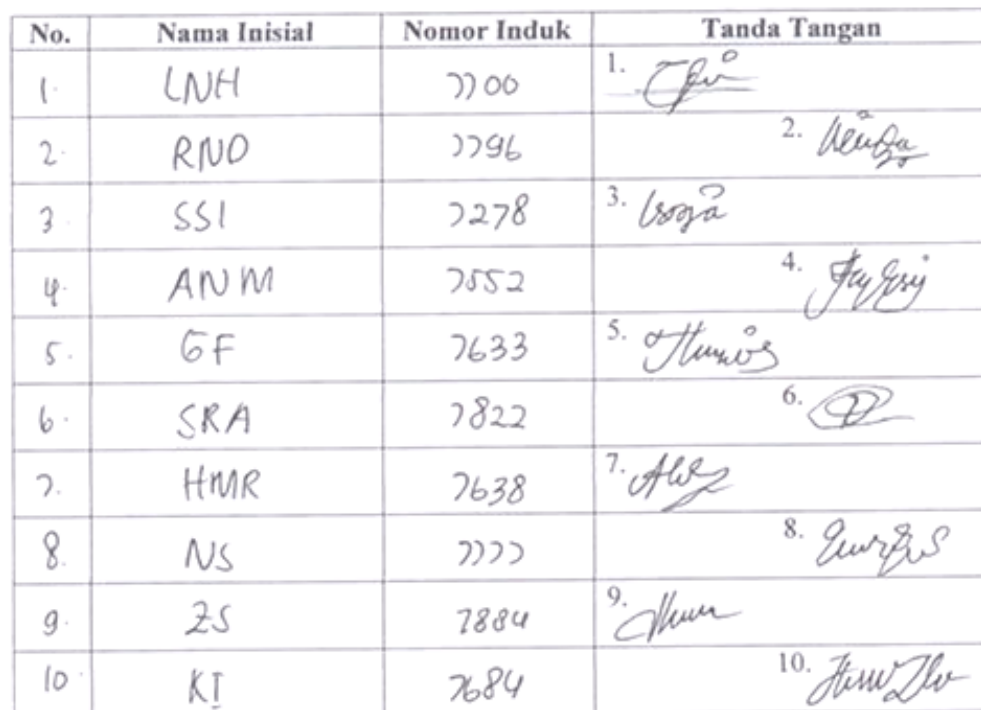 No. Nama Inisial Nomor Induk Tanda Tangan
1. LNH 7700 1.
2. RNO 7796 2.
3. SSI 7278 3.
4. ANM 7552 4.
5. GF 7633 5.
6. SRA 7822 6.
7. HMR 7638 7.
8. NS 7777 8.
9. ZS 7884 9.
10 KI 7684 10.